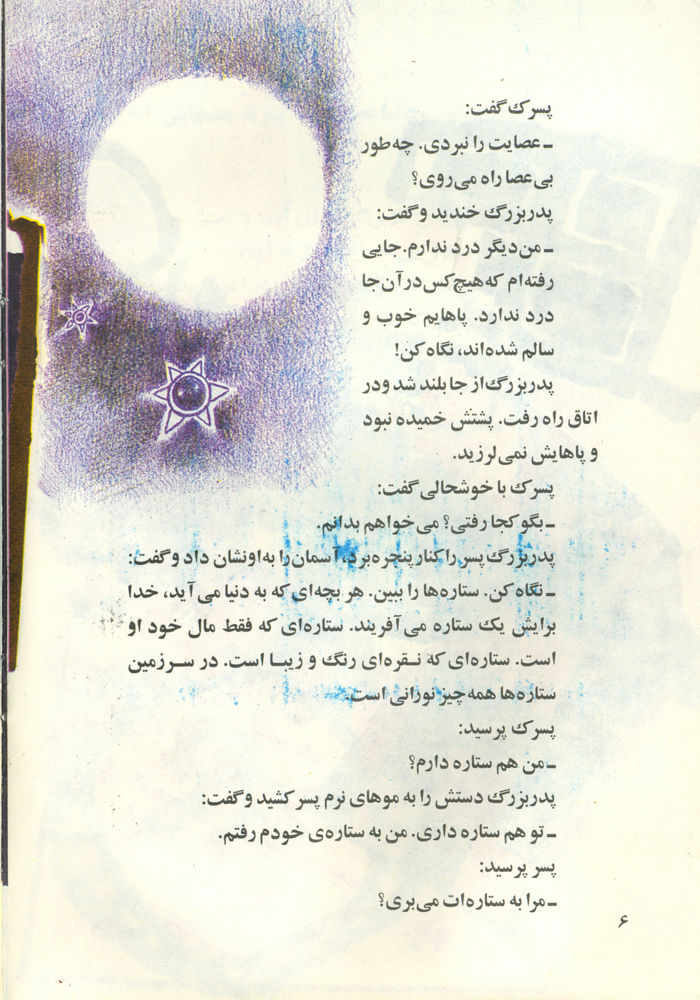 پسرک گفت:
ـ عصایت را نبردی. چه‌طور
بی‌عصا راه می‌روی؟
پدربزرگ خندید و گفت:
ـ من دیگر درد ندارم. جایی
رفته‌ام که هیچ‌کس در آن جا
درد ندارد. پاهایم خوب و
سالم شده‌اند، نگاه کن!
پدربزرگ از جا بلند شد و در
اتاق راه رفت. پشتش خمیده نبود
و پاهایش نمی‌لرزید.
پسرک با خوشحالی گفت:
ـ بگو کجا رفتی؟ می‌خواهم بدانم.
پدربزرگ پسر را کنار پنجره برد، آسمان را به او نشان داد و گفت:
ـ نگاه کن. ستاره‌ها را ببین. هر بچه‌ای که به دنیا می‌آید، خدا
برایش یک ستاره می‌آفریند. ستاره‌ای که فقط مال خود او
است. ستاره‌ای که نقره‌ای رنگ و زیبا است. در سرزمین
ستاره‌ها همه چیز نورانی است.
پسرک پرسید:
ـ من هم ستاره دارم؟
پدربزرگ دستش را به موهای نرم پسر کشید و گفت:
ـ تو هم ستاره داری. من به ستاره‌ی خودم رفتم.
پسر پرسید:
ـ مرا به ستاره‌ات می‌بری؟
۶